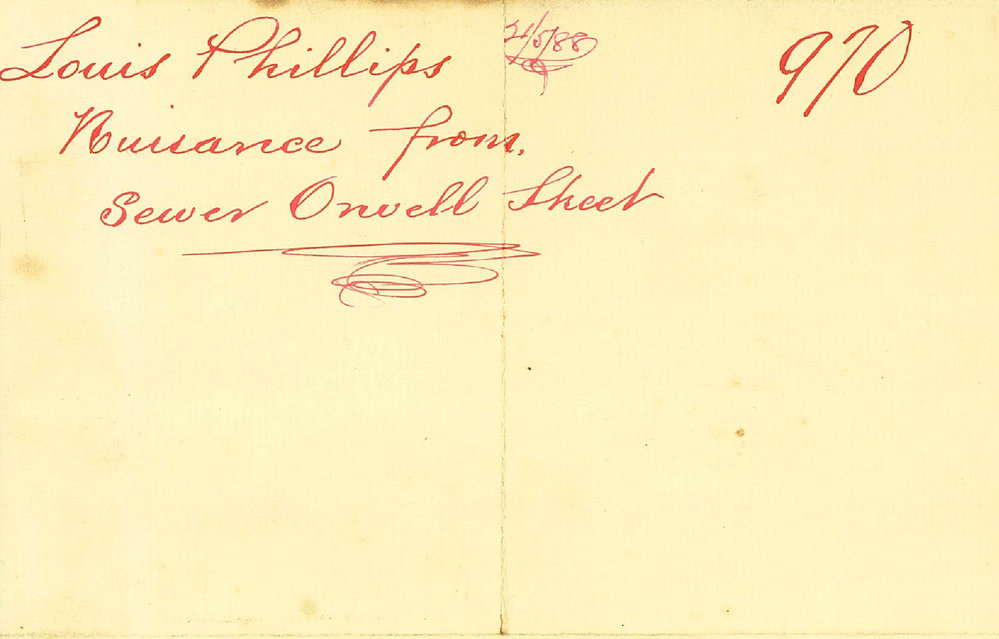 Louis Phillips 21/5/88 970
Nuisance from.
Sewer Orwell Street